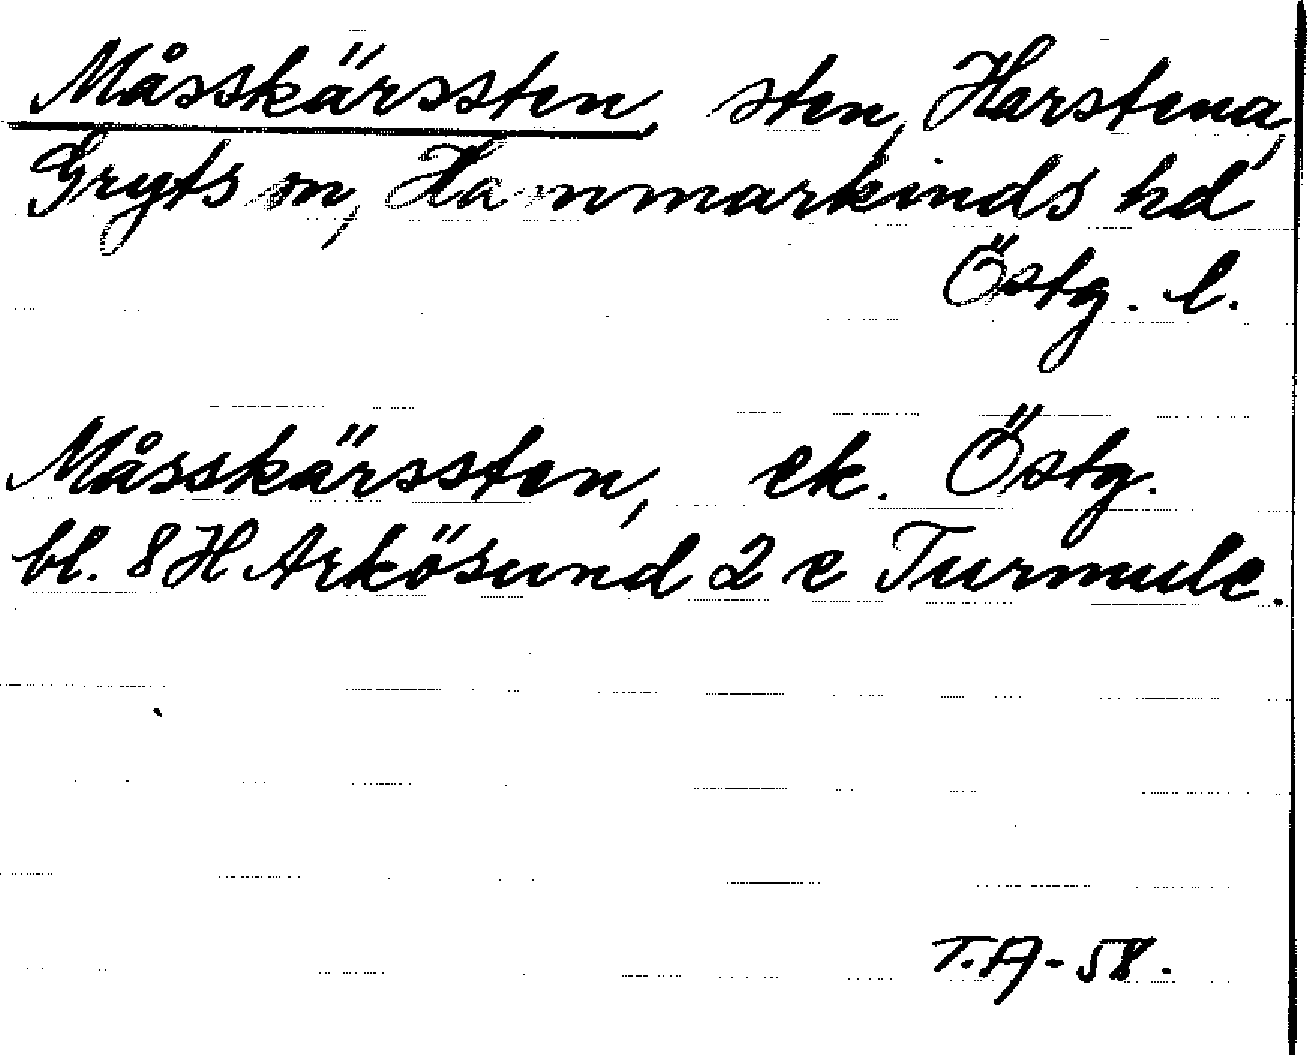 Måsskärssten, sten, Harstena,
Gryts sn, Hammarkinds hd
Östg. l.
Måsskärssten, ek. Östg.
bl. 8 H Arkösund 2 c Turmule.
T.A-58.